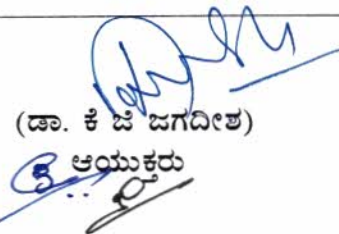 (ಡಾ. ಕೆ ಜೆ ಜಗದೀಶ)
ಆಯುಕ್ತರು